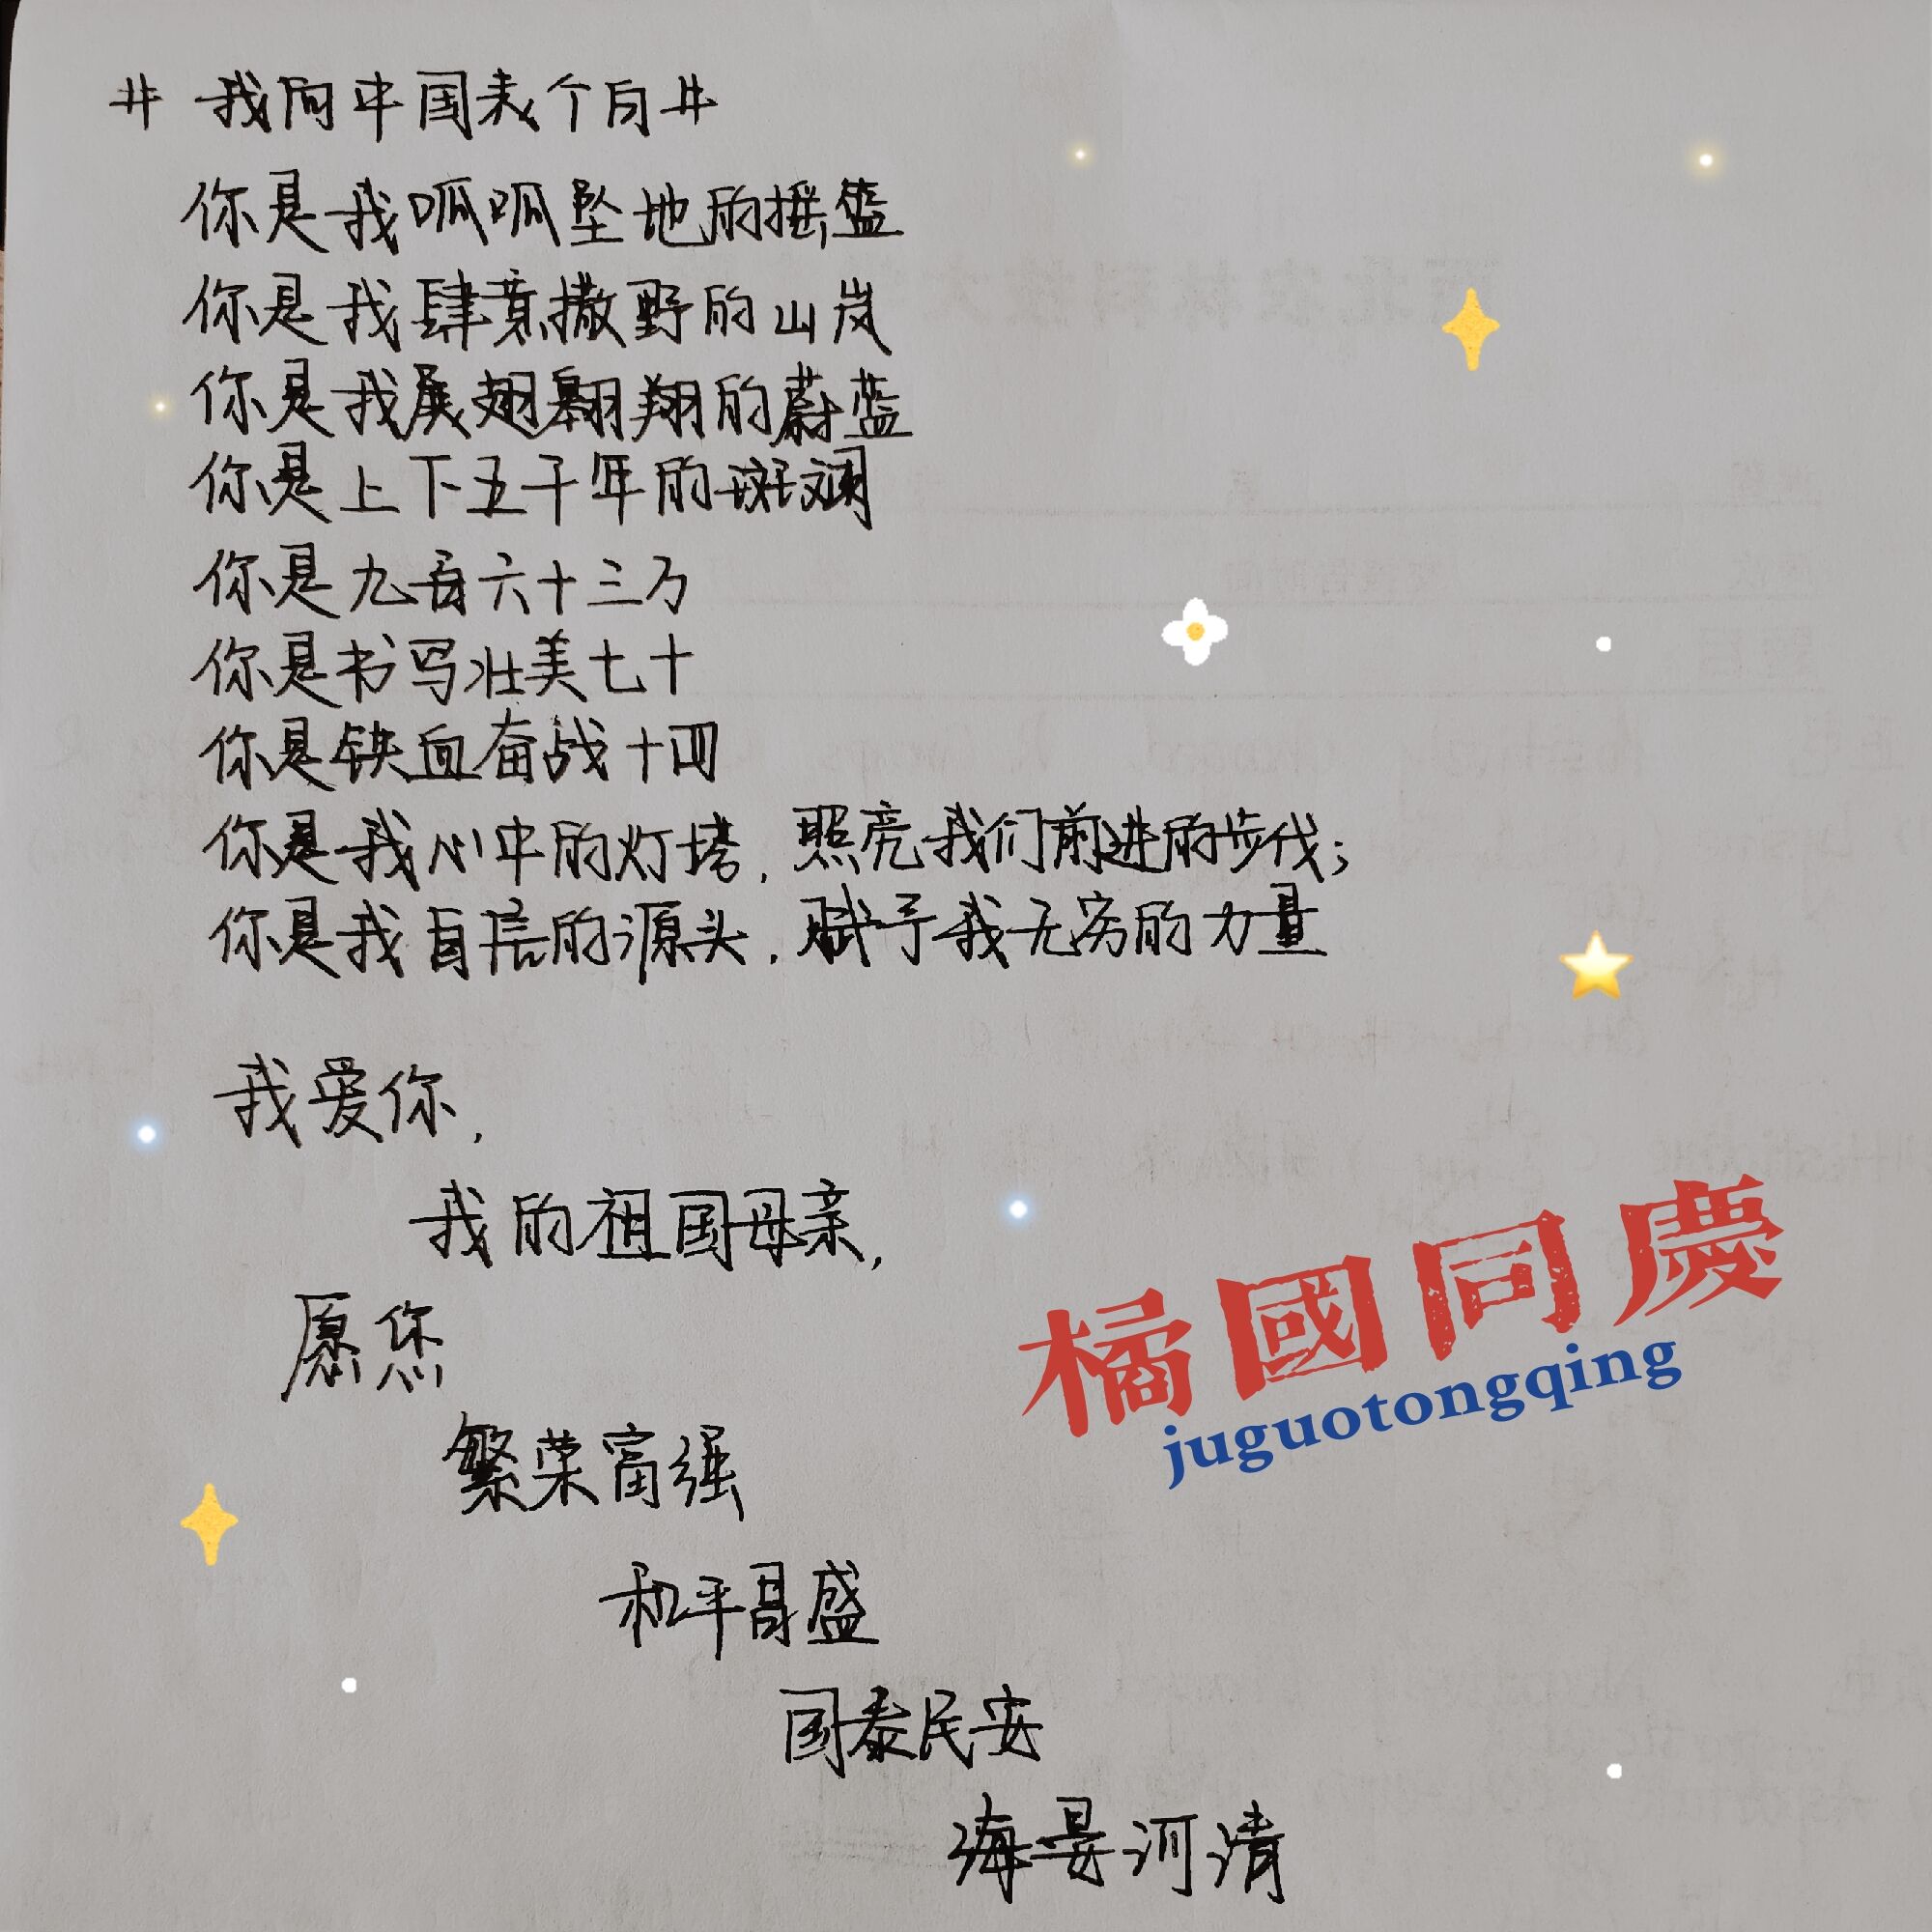 # 我向中国表个白#
你是我呱呱坠地的摇篮
你是我肆意撒野的山岚
你是我展翅翱翔的蔚蓝
你是上下五千年的斑斓
你是九百六十三万
你是书写壮美七十
你是铁血奋战十四
你是我心中的灯塔，照亮我们前进的步伐；
你是我自信的源头，赋予我无穷的力量
我爱你，
我的祖国母亲，
愿您
繁荣富强
和平昌盛
国泰民安
海晏河清
橘國同慶
juguotongqing